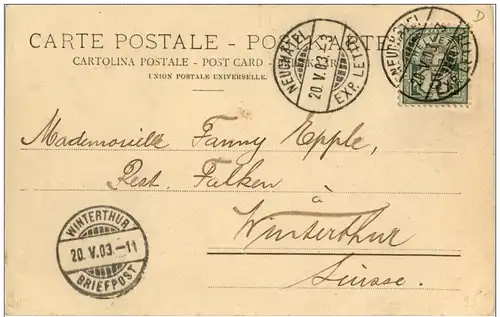 CARTE POSTALE – POSTKARTE
CARTOLINA POSTALE - POST CARD -
UNION POSTALE UNIVERSELLE.
NEUCHATEL
20.V.03.-3
EXP. LETTR.
NEUCHATEL
Mademoiselle Fanny Epple,
Rest. Falken
à
Winterthur
Suisse.
WINTERTHUR
20.V.03.-11
BRIEFPOST
D